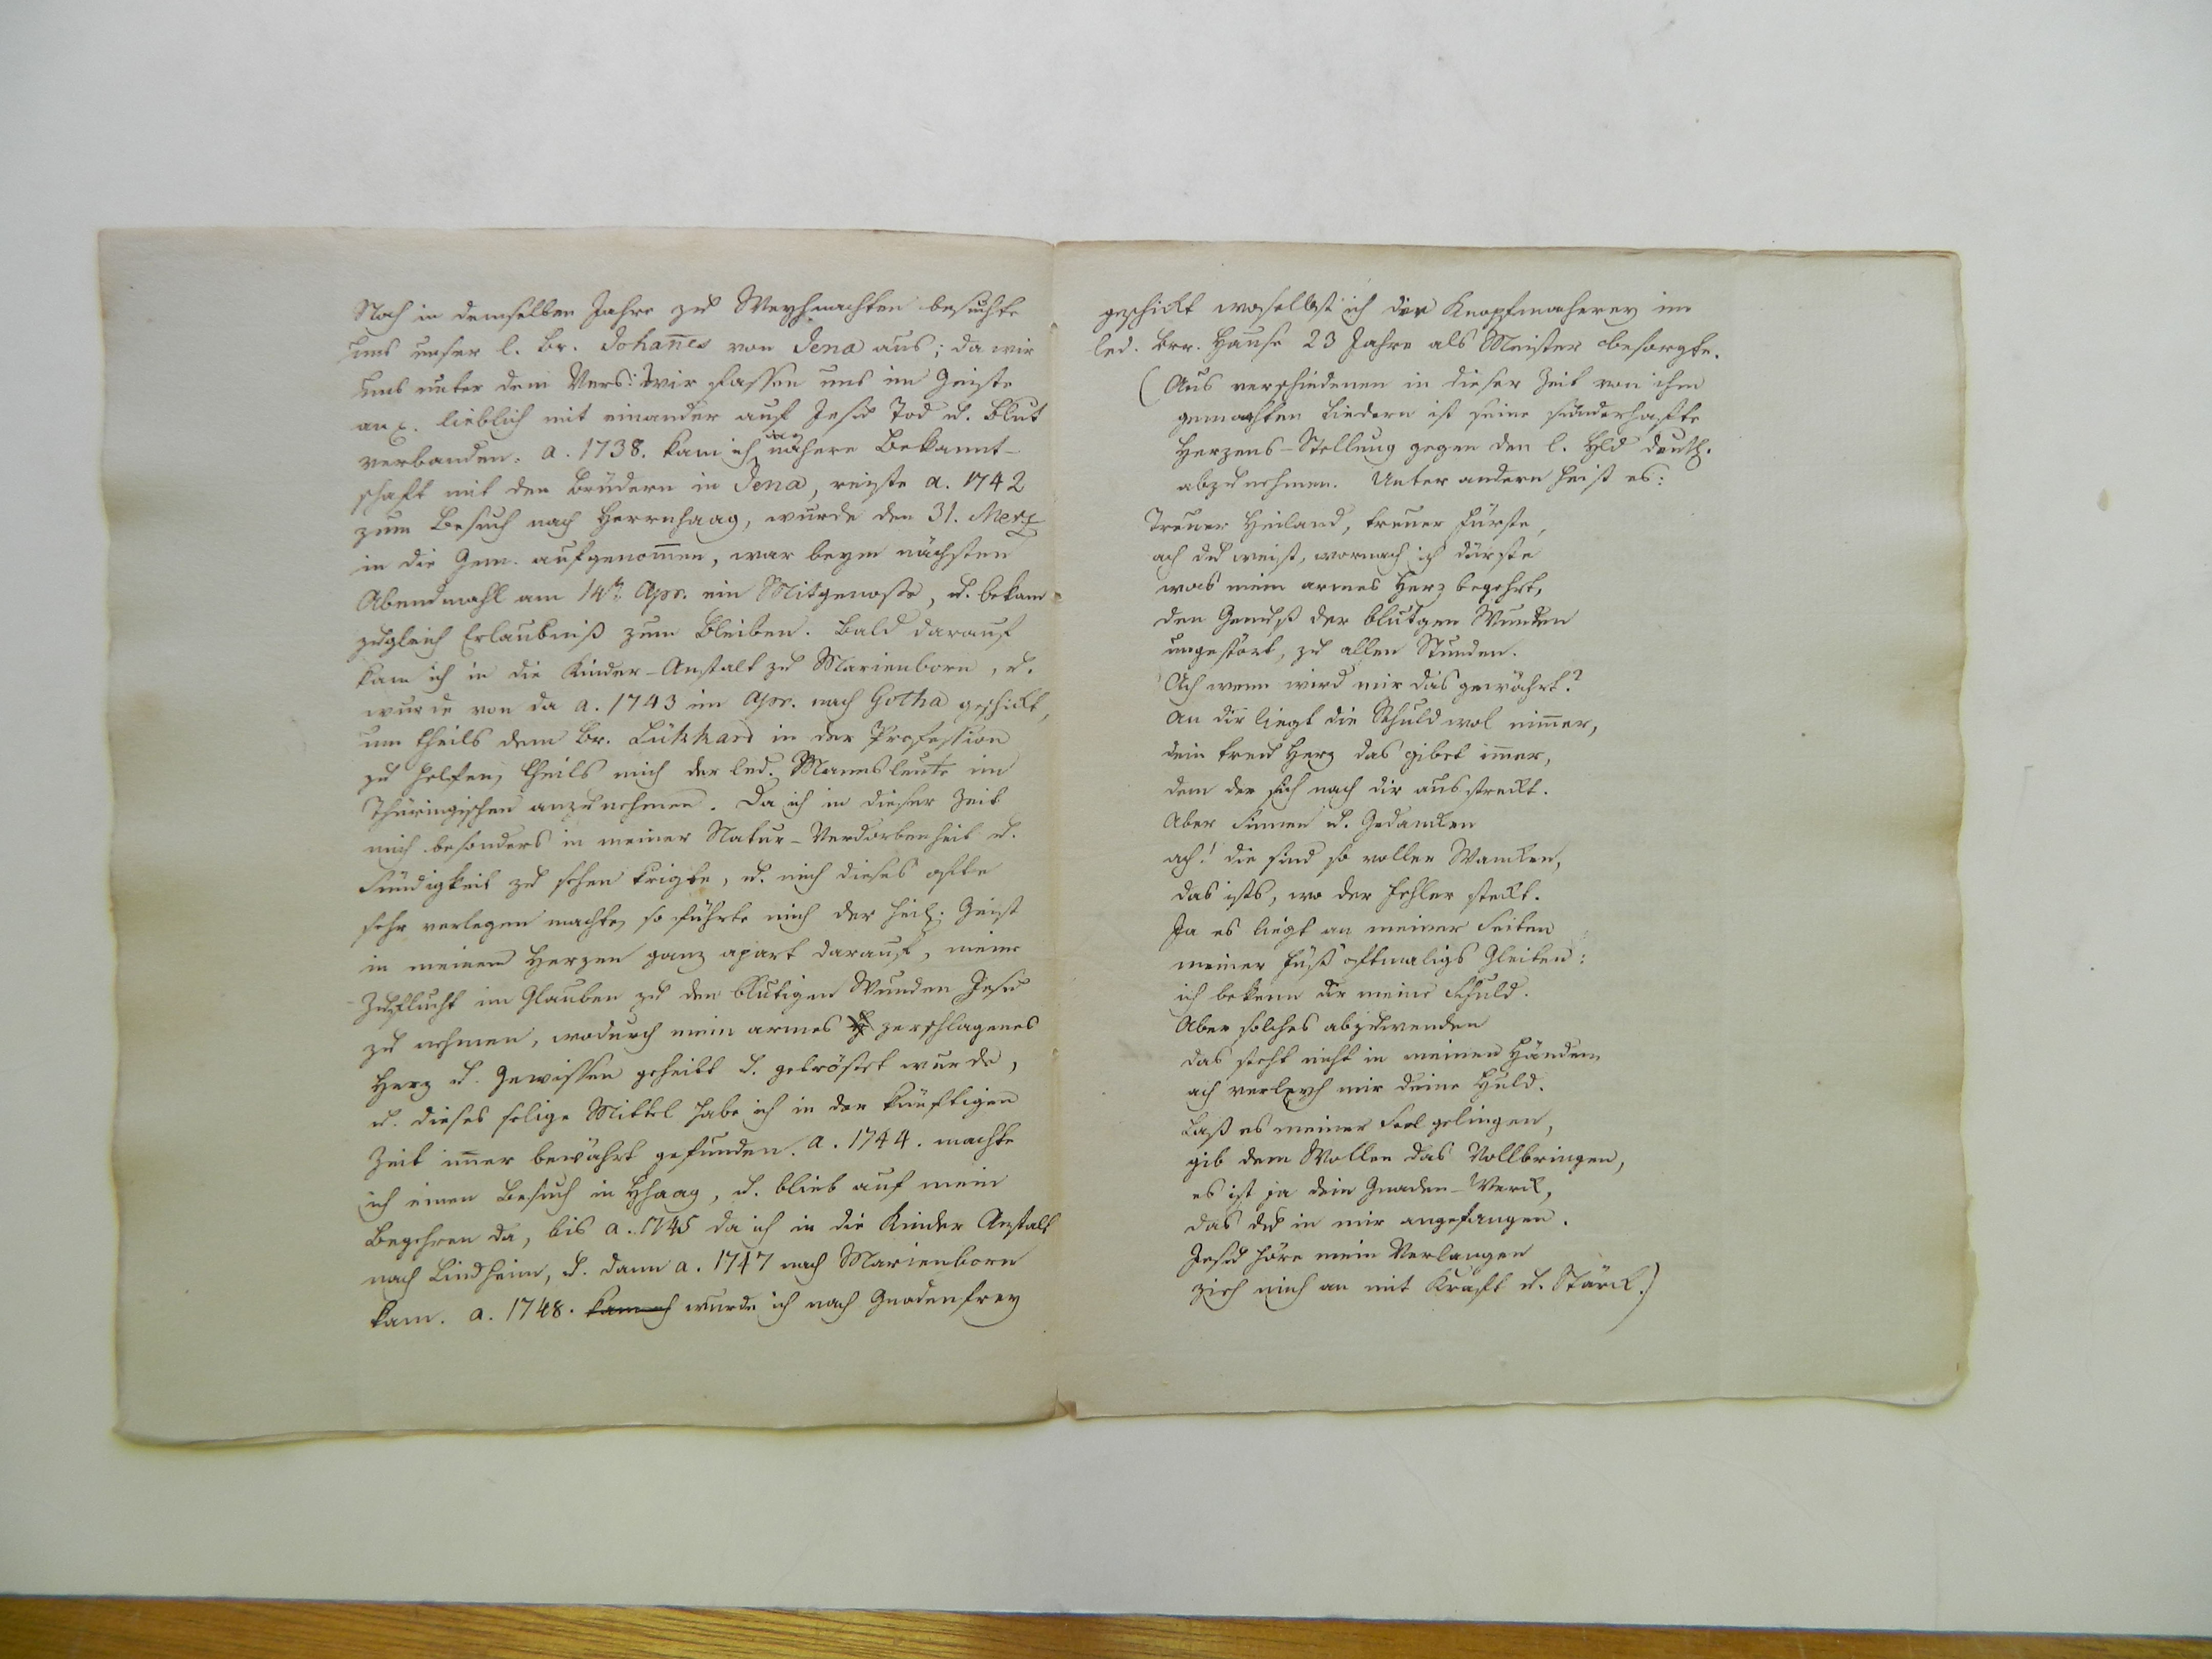 Noch in demselben Jahre zu Weyhnachten besuchte
uns unser l. Br. Johan̄es von Jena aus; da wir
uns unter dem Vers: wir fassen uns im Geiste
an x. lieblich mit einander auf Jesu Tod u. Blut
verbanden. a. 1738. kam ich in nähere Bekannt-
schaft mit den Brüdern in Jena, reiste a. 1742
zum Besuch nach Herrnhaag, wurde den 31. Merz
in die Gem. aufgenom̄en, war beym nächsten
Abendmahl am 14t. Apr. ein Mitgenosse, u. bekam
zugleich Erlaubniß zum Bleiben. Bald darauf
kam ich in die Kinder-Anstalt zu Marienborn, u.
wurde von da a. 1743 im Apr. nach Gotha geschickt,
um theils dem Br. Lükhard in der Profession
zu helfen, theils mich der led. Mannsleute im
Thüringischen anzunehmen. Da ich in dieser Zeit
mich besonders in meiner Natur-Verdorbenheit u.
Sündigkeit zu sehen krigte, u. mich dieses ofte
sehr verlegen machte, so führte mich der heil. Geist
in meinem Herzen ganz apart darauf, meine
Zuflucht im Glauben zu den blutigen Wunden Jesu
zu nehmen, wodurch mein armes zerschlagenes
Herz u. Gewissen geheilt u. getröstet wurde,
u. dieses selige Mittel habe ich in der künftigen
Zeit im̄er bewährt gefunden. a. 1744. machte
ich einen Besuch in Hhaag, u. blieb auf mein
Begehren da, bis a. 1745 da ich in die Kinder Anstalt
nach Lindheim, u. dann a. 1747 nach Marienborn
kam. a. 1748. kam ich wurde ich nach Gnadenfrey
geschickt woselbst ich die Knopfmacherey im
led. Brr. Hause 23 Jahre als Meister besorgte.
(Aus verschiedenen in dieser Zeit von ihm
gemachten Liedern ist seine sünderhafte
Herzens-Stellung gegen den l. Hld deutl.
abzunehmen. Unter andern heist es:
Treuer Heiland, treuer Fürste,
ach du weist, wornach ich dürste
was mein armes Herz begehrt,
den Genuß der blutgen Wunden
ungestört, zu allen Stunden.
Ach wenn wird mir das gewährt?
An dir liegt die Schuld wol nim̄er,
dein treu Herz das gibet im̄er,
dem der sich nach dir ausstreckt.
Aber Sinnen u. Gedancken
ach! die sind so voller Wancken,
das ists, wo der Fehler steckt.
Ja es liegt an meiner Seiten
meiner Füß oftmaligs Gleiten:
ich bekenn dir meine Schuld.
Aber solches abzuwenden
das steht nicht in meinen Händen
ach verleyh mir deine Huld.
Laß es meiner Seel gelingen,
gib dem Wollen das Vollbringen,
es ist ja dein Gnaden-Werck,
das du in mir angefangen.
Jesu höre mein Verlangen
zieh mich an mit Kraft u. Stärck.)